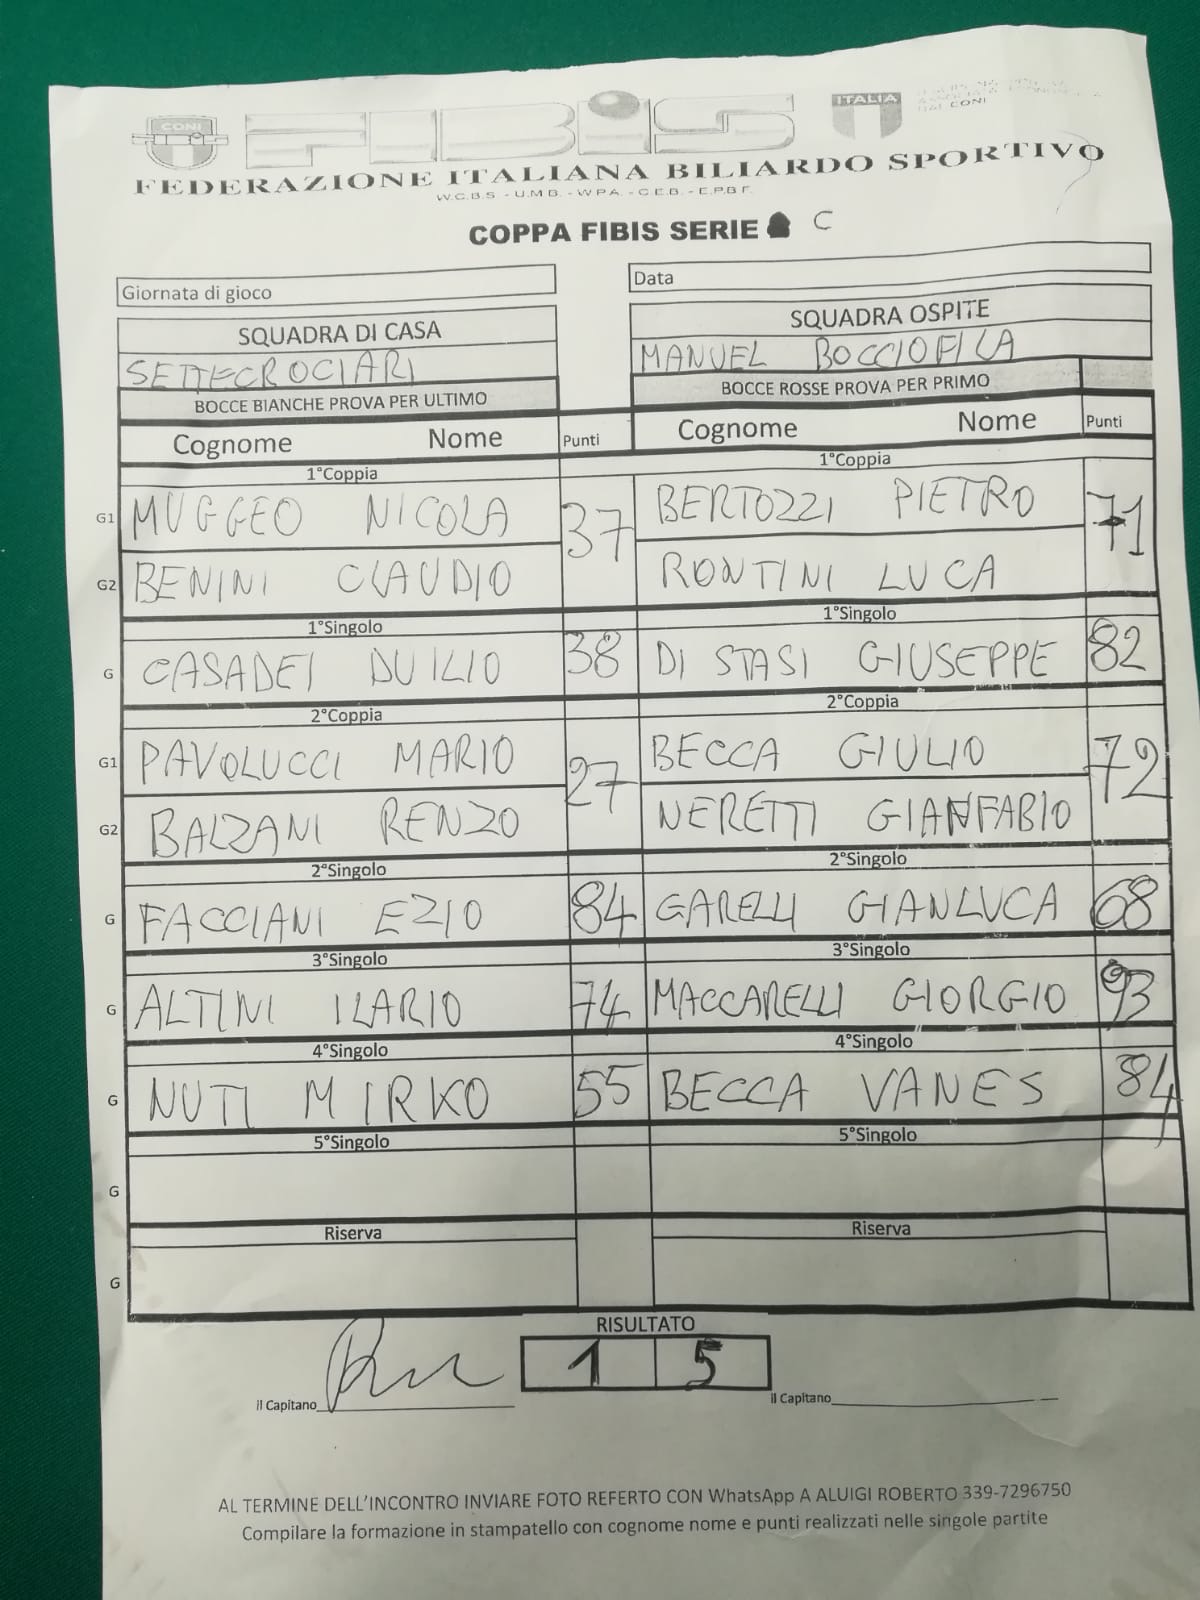 CONI
FIBIS
ITALIA
DAL CONI
FEDERAZIONE ITALIANA BILIARDO SPORTIVO
W.C.B.S - U.M.B. - W.P.A. - C.E.B. - E.P.B.F.
COPPA FIBIS SERIE C
Giornata di gioco Data
SQUADRA DI CASA SQUADRA OSPITE
SETTECROCIARI MANUEL BOCCIOFILA
BOCCE BIANCHE PROVA PER ULTIMO BOCCE ROSSE PROVA PER PRIMO
Cognome Nome Punti Cognome Nome Punti
1°Coppia 1°Coppia
G1 MUGGEO NICOLA 37 BERTOZZI PIETRO 71
G2 BENINI CLAUDIO RONTINI LUCA
1°Singolo 1°Singolo
G CASADEI DUILIO 38 DI STASI GIUSEPPE 82
2°Coppia 2°Coppia
G1 PAVOLUCCI MARIO 27 BECCA GIULIO 72
G2 BALZANI RENZO NERETTI GIANFABIO
2°Singolo 2°Singolo
G FACCIANI EZIO 84 GARELLI GIANLUCA 68
3°Singolo 3°Singolo
G ALTINI ILARIO 74 MACCARELLI GIORGIO 93
4°Singolo 4°Singolo
G NUTI MIRKO 55 BECCA VANES 84
5°Singolo 5°Singolo
G
Riserva Riserva
G
RISULTATO
1 5
il Capitano il Capitano
AL TERMINE DELL'INCONTRO INVIARE FOTO REFERTO CON WhatsApp A ALUIGI ROBERTO 339-7296750
Compilare la formazione in stampatello con cognome nome e punti realizzati nelle singole partite